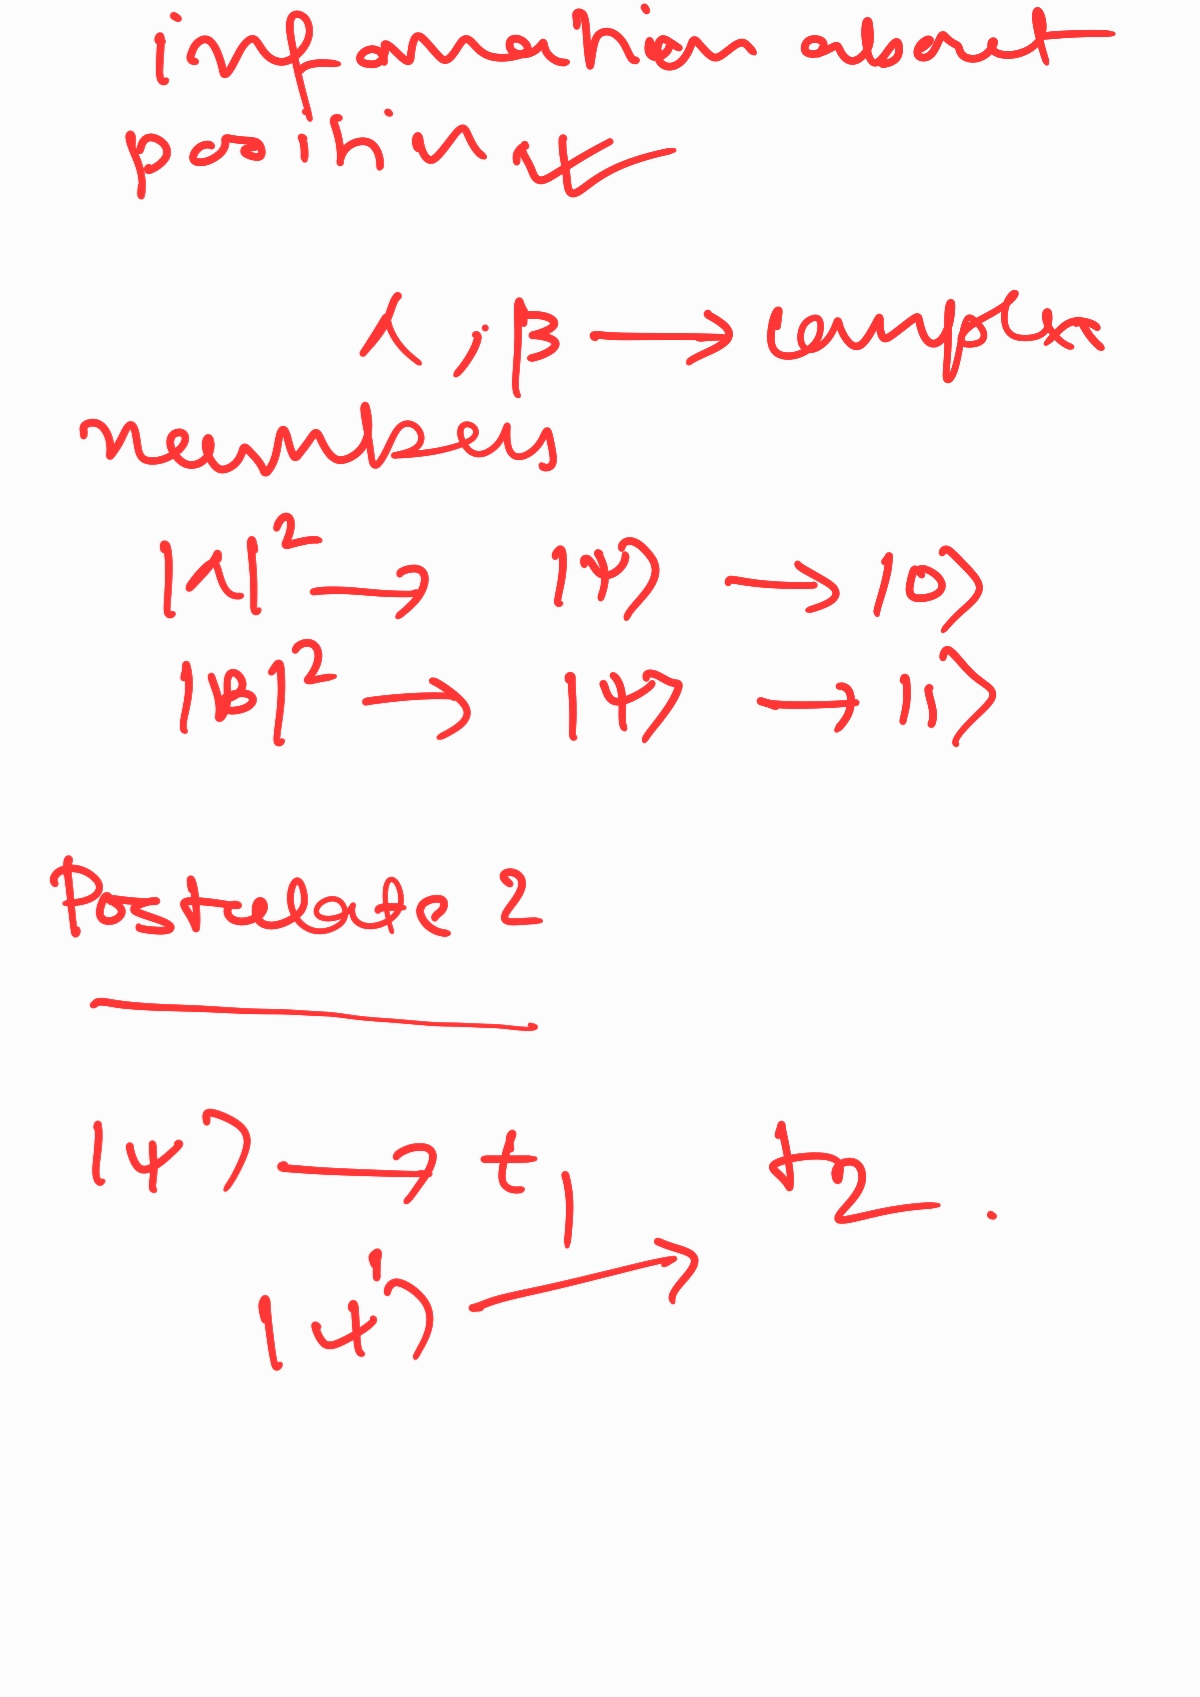 information about
position ψ
λ ; β → complex
numbers
|λ|² → |ψ⟩ → |0⟩
|β|² → |ψ⟩ → |1⟩
Postulate 2
|ψ⟩ → t₁ t₂.
|ψ'⟩ →